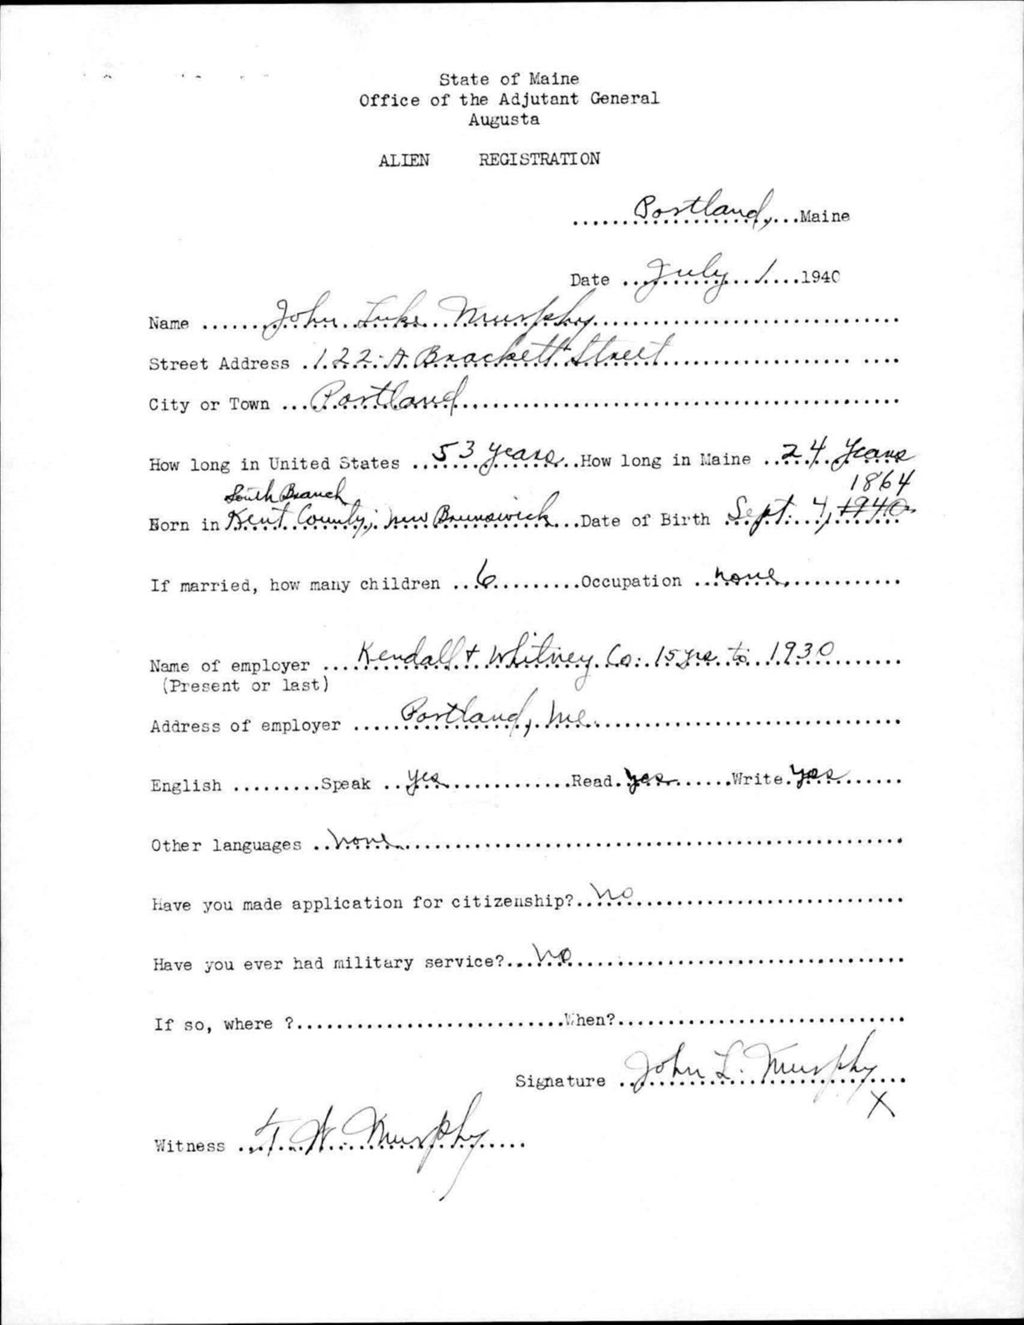 State of Maine
Office of the Adjutant General
Augusta
ALIEN REGISTRATION
......Portland,...Maine
Date ...July 1....1940
Name ......John Luke Murphy
Street Address .122-A Brackett Street
City or Town ...Portland
How long in United States ...53 years..How long in Maine ..24 years
South Branch 1864
Born in Kent County, New Brunswick...Date of Birth Sept. 4, 1940
If married, how many children ...6.........Occupation ..none
Name of employer ....Kendall + Whitney Co. 15 yrs. to 1930
(Present or last)
Address of employer ....Portland, Me.
English .........Speak ..yes............Read.yes......Write.yes......
Other languages ..none
Have you made application for citizenship?..No
Have you ever had military service?...No
If so, where ?...........................When?...........................
Signature ..John L. Murphy
X
Witness ..T. W. Murphy